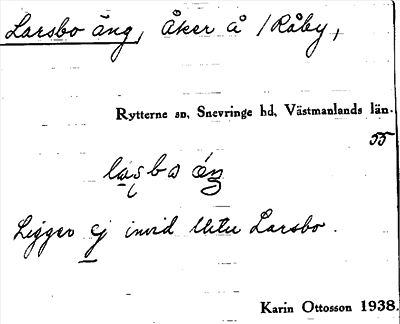 Larsbo äng, Åker å /Råby,
Rytterne sn, Snevringe hd, Västmanlands län.
55
Ligger ej invid Larsbo.
Karin Ottosson 1938.